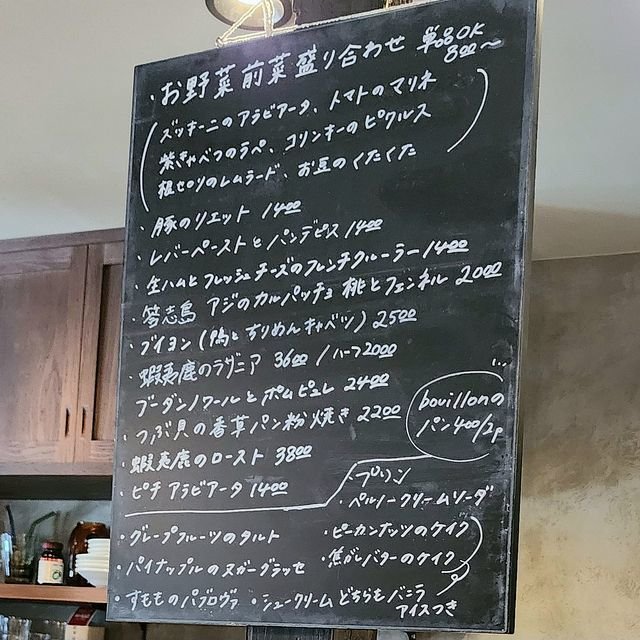 ・お野菜前菜盛り合わせ 単品OK 800〜
(ズッキーニのアラビアータ、トマトのマリネ
紫きゃべつのラペ、コリンキーのピクルス
根セロリのレムラード、お豆のくたくた)
・豚のリエット 1400
・レバーペーストとパンデピス 1400
・生ハムとフレッシュチーズのフレンチクルーラー 1400
・答志島 アジのカルパッチョ 桃とフェンネル 2000
・ブイヨン(鴨とちりめんキャベツ) 2500
・蝦夷鹿のラザニア 3600 / ハーフ2000
・ブーダンノワールとポムピュレ 2400
・つぶ貝の香草パン粉焼き 2200
・蝦夷鹿のロースト 3800
・ピチ アラビアータ 1400
bouillonの
パン400/2p
・プリン
・ペルノークリームソーダ
・グレープフルーツのタルト
・パイナップルのヌガーグラッセ
・すもものパブロヴァ
・ピーカンナッツのケイク
・焦がしバターのケイク
・シュークリーム どちらもバニラ
アイスつき